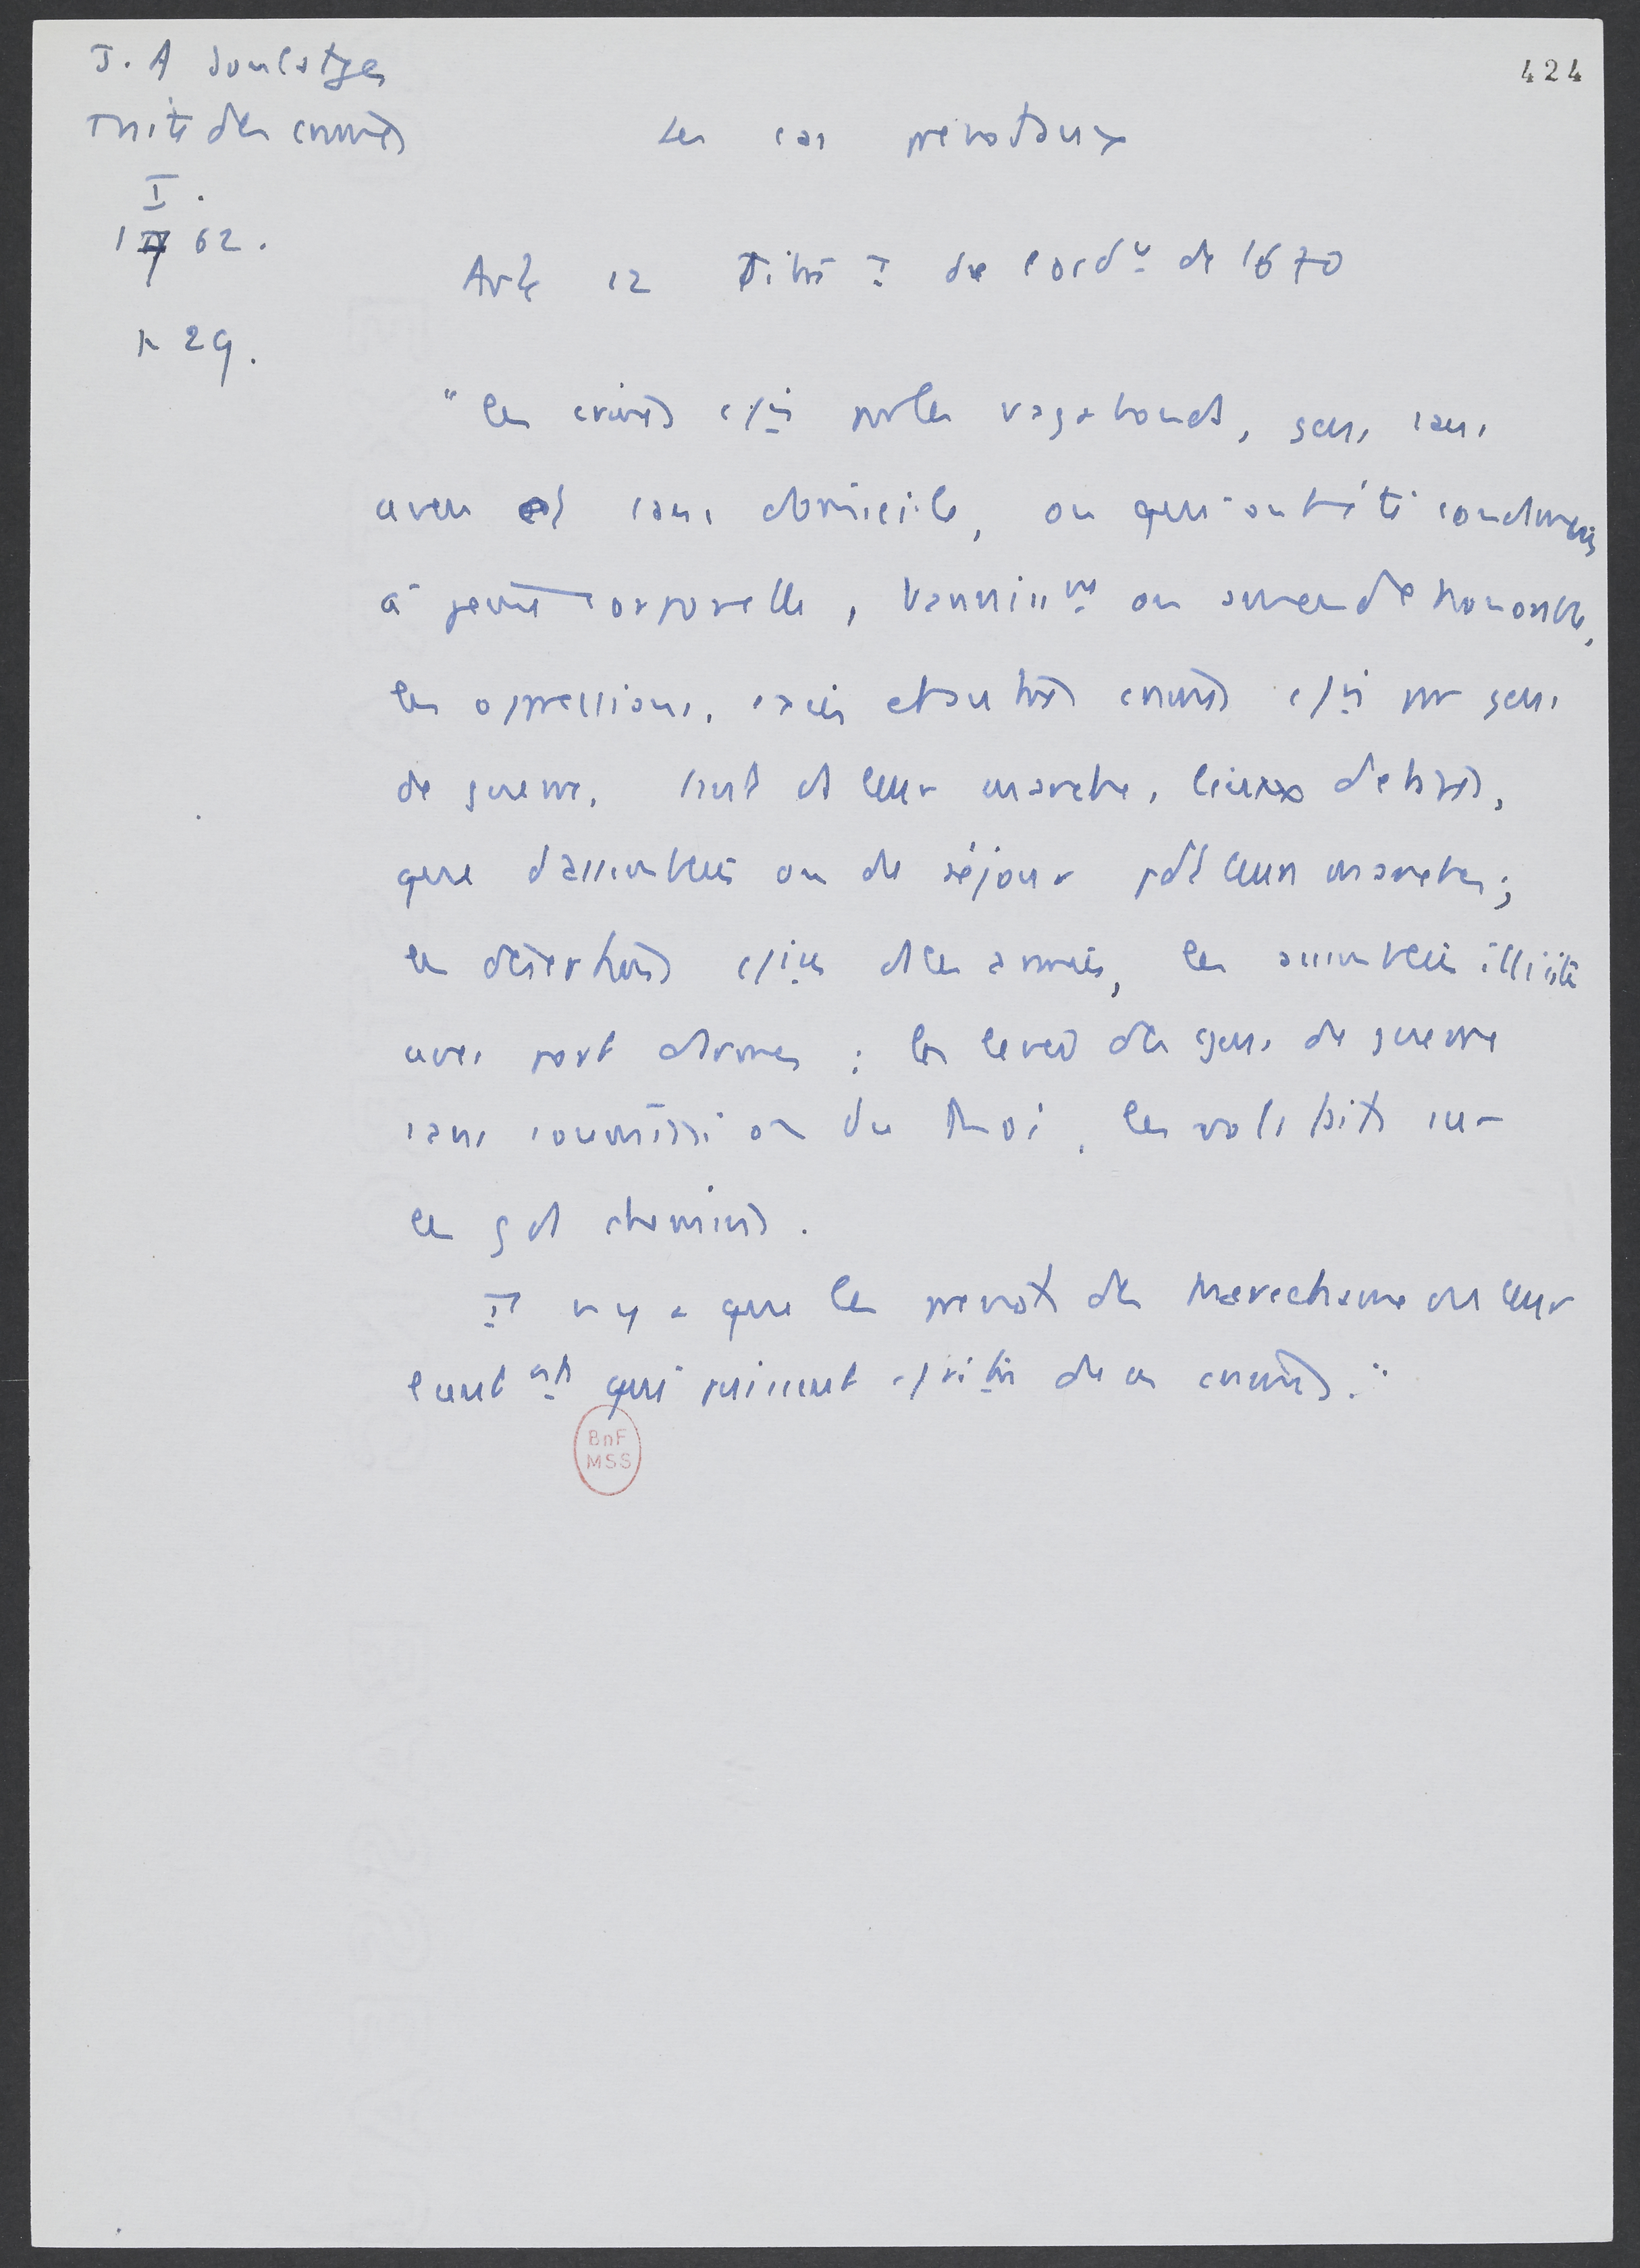 J. A Soulatges
Traité des crimes
I.
1762.
p 29.
424
Les cas prévotaux
Art 12 Titre I de l'ord de 1670
"les crimes par les vagabonds, gens sans
aveu et sans domicile, ou qui ont été condamnés
à peine corporelle, bannissmt ou amende honorable,
les oppressions, excès et autres crimes par gens
de guerre, tant ds leur marche, lieux d'étapes,
que d'assemblées ou de séjour pdt leurs marches;
les désertions ds les armées, les assemblées illicites
avec port d'armes : les levées des gens de guerre
sans commission du Roi, les vols faits sur
les gds chemins.
Il n'y a que les prévots des Maréchaux ou leur
qui puissent de ces crimes."
BnF
MSS